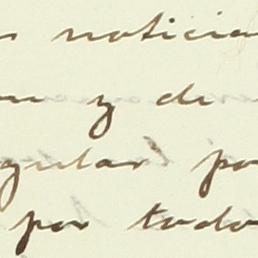 s noticia
en y de
gular po
por todo